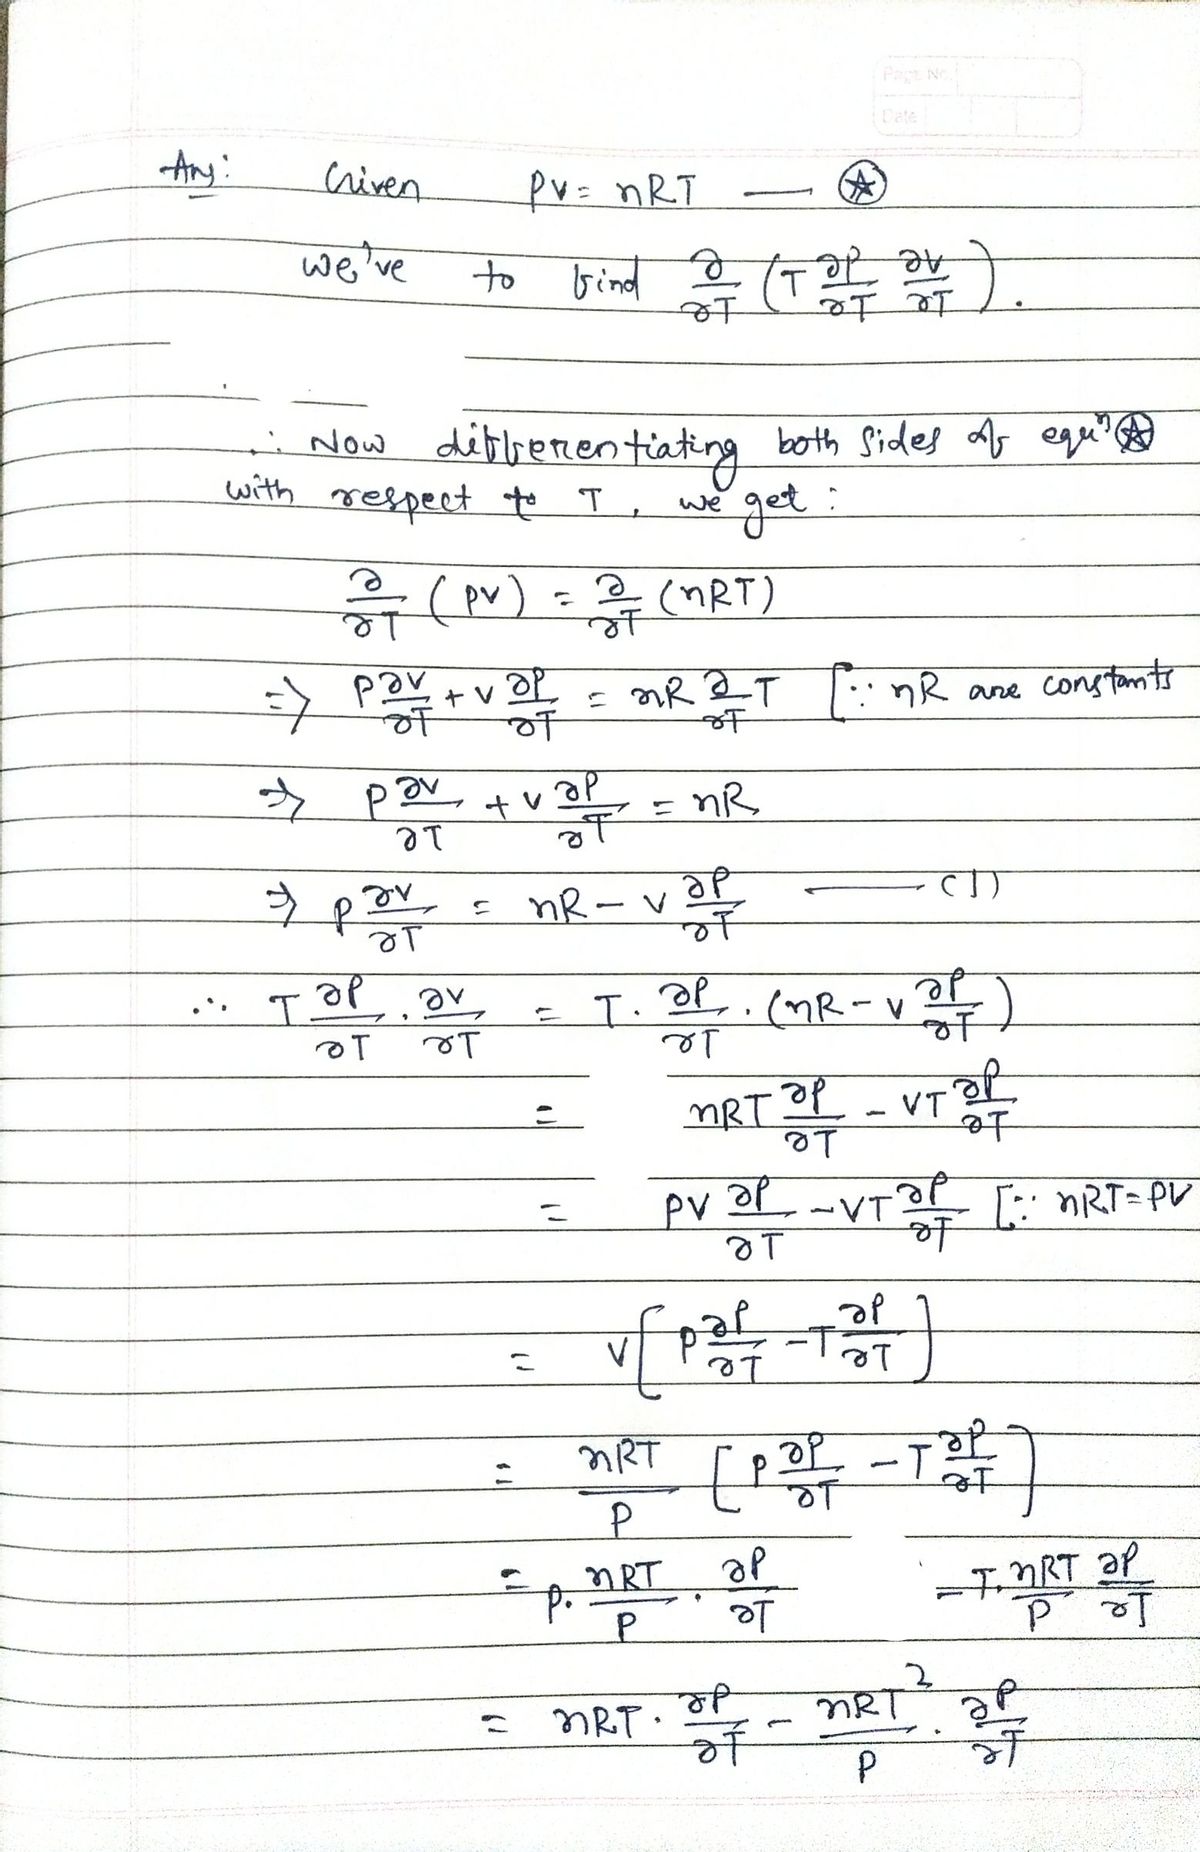 Page No.
Date
Ans: Given PV = nRT — ⍟
we've to find ∂/∂T (T ∂P/∂T ∂V/∂T).
∴ Now differentiating both sides of equⁿ ⍟
with respect to T, we get:
∂/∂T (PV) = ∂/∂T (nRT)
=> P ∂V/∂T + V ∂P/∂T = nR ∂/∂T T [∵ nR are constants
=> P ∂V/∂T + V ∂P/∂T = nR
=> P ∂V/∂T = nR - V ∂P/∂T — (1)
∴ T ∂P/∂T . ∂V/∂T = T. ∂P/∂T . (nR - V ∂P/∂T)
= nRT ∂P/∂T - VT ∂P/∂T
= PV ∂P/∂T - VT ∂P/∂T [∵ nRT = PV
= V [P ∂P/∂T - T ∂P/∂T]
= nRT/P [P ∂P/∂T - T ∂P/∂T]
= P. nRT/P . ∂P/∂T - T. nRT/P ∂P/∂T
= nRT . ∂P/∂T - nRT²/P . ∂P/∂T